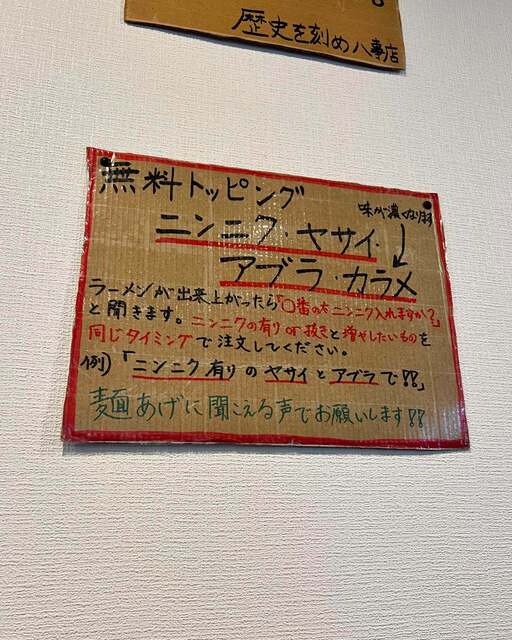 歴史を刻め八事店
無料トッピング
味が濃くなります
ニンニク・ヤサイ・
アブラ・カラメ
ラーメンが出来上がったら「〇番の方ニンニク入れますか?」
と聞きます。ニンニクの有りor抜きと増やしたいものを
同じタイミングで注文してください。
例)「ニンニク有りのヤサイとアブラで!!」
麺あげに聞こえる声でお願いします!!